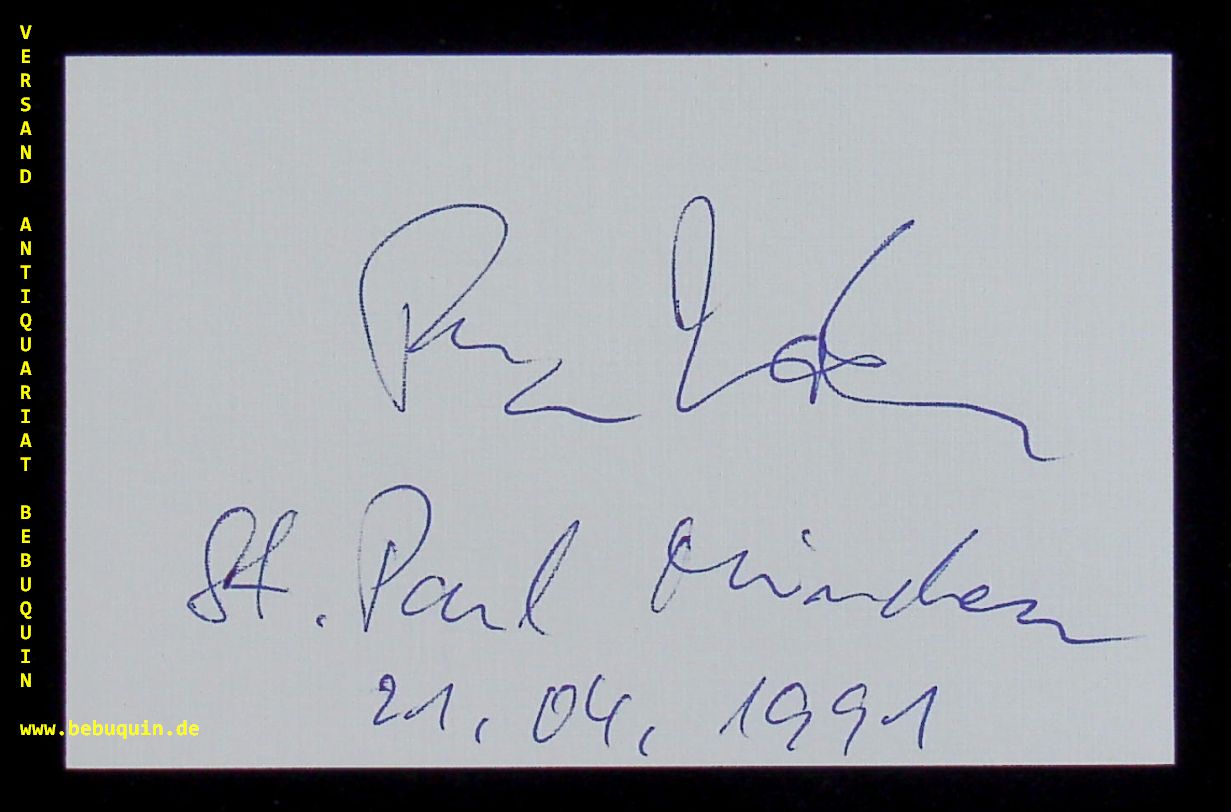 VERSAND ANTIQUARIAT BEBUQUIN
St. Paul München
21. 04. 1991
www.bebuquin.de